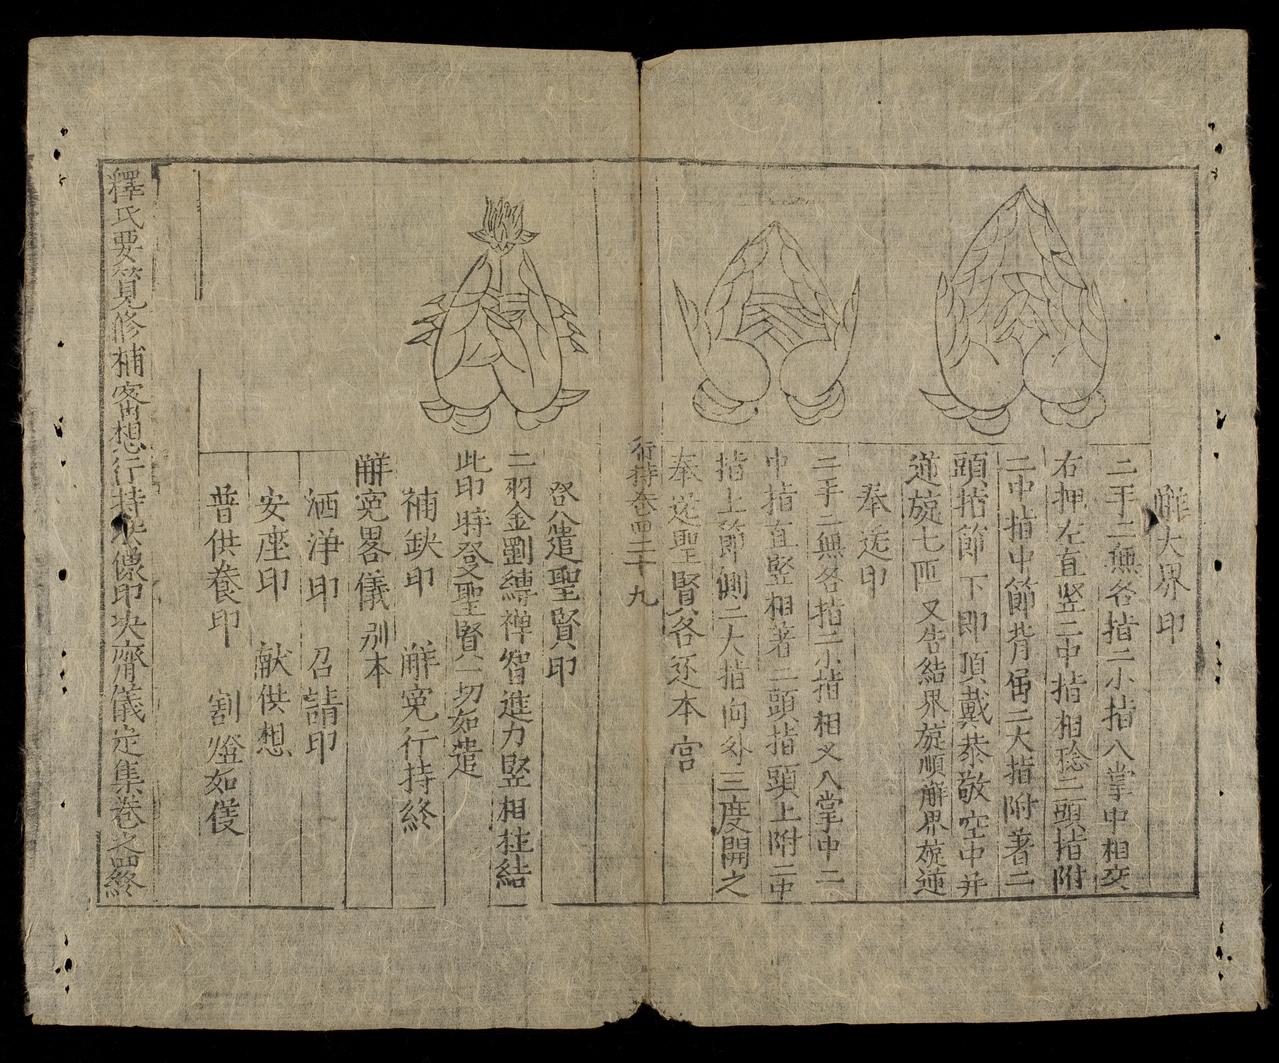 觧大界印
二手二無名指二小指八掌中相交
右押左直竪二中指相稔二頭指附
二中指中節背屈二大指附著二
頭指節下即頂戴恭敬空中并
逆旋七匝又告結界旋順觧界旋逆
奉送印
二手二無名指二小指相叉入掌中二
中指直竪相著二頭指頭上附二中
指上節側二大指向外三度開之
奉送聖賢各还本宮
行持卷四二十九
發遣聖賢印
二羽金剛縛禅智進力竪相拄結
此印時發聖賢一切如遣
補缺印 觧寃行持終
觧寃畧儀 別本
洒浄印 召請印
安座印 献供想
普供養印 割燈如儀
釋氏要覧修補宻想行持 懐印决齋儀定集卷之四終